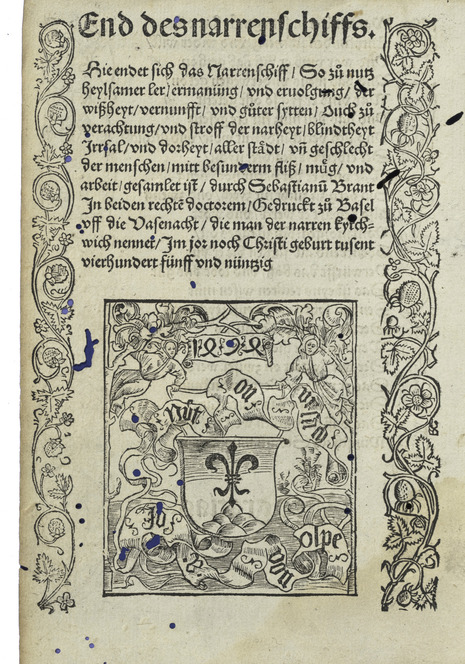 End des narrenschiffs.
Hie endet sich das Narrenschiff / So zů nutz
heylsamer ler / ermanung / vnd eruolgung / der
wißheyt / vernunfft / vnd gůter sytten / Ouch zů
verachtung / vnd stroff der narheyt / blindtheyt
Irrsal / vnd dorheyt / aller städt / vñ geschlecht
der menschen / mitt besunderm fliß / můg / vnd
arbeit / gesamlet ist / durch Sebastianū Brant
In beiden rechtē doctorem / Gedruckt zů Basel
vff die Vasenacht / die man der narren kyrch-
wich nennet / Im jor noch Christi geburt tusent
vierhundert fünff vnd nüntzig
Nüt on vrsach
Jo B. von olpe